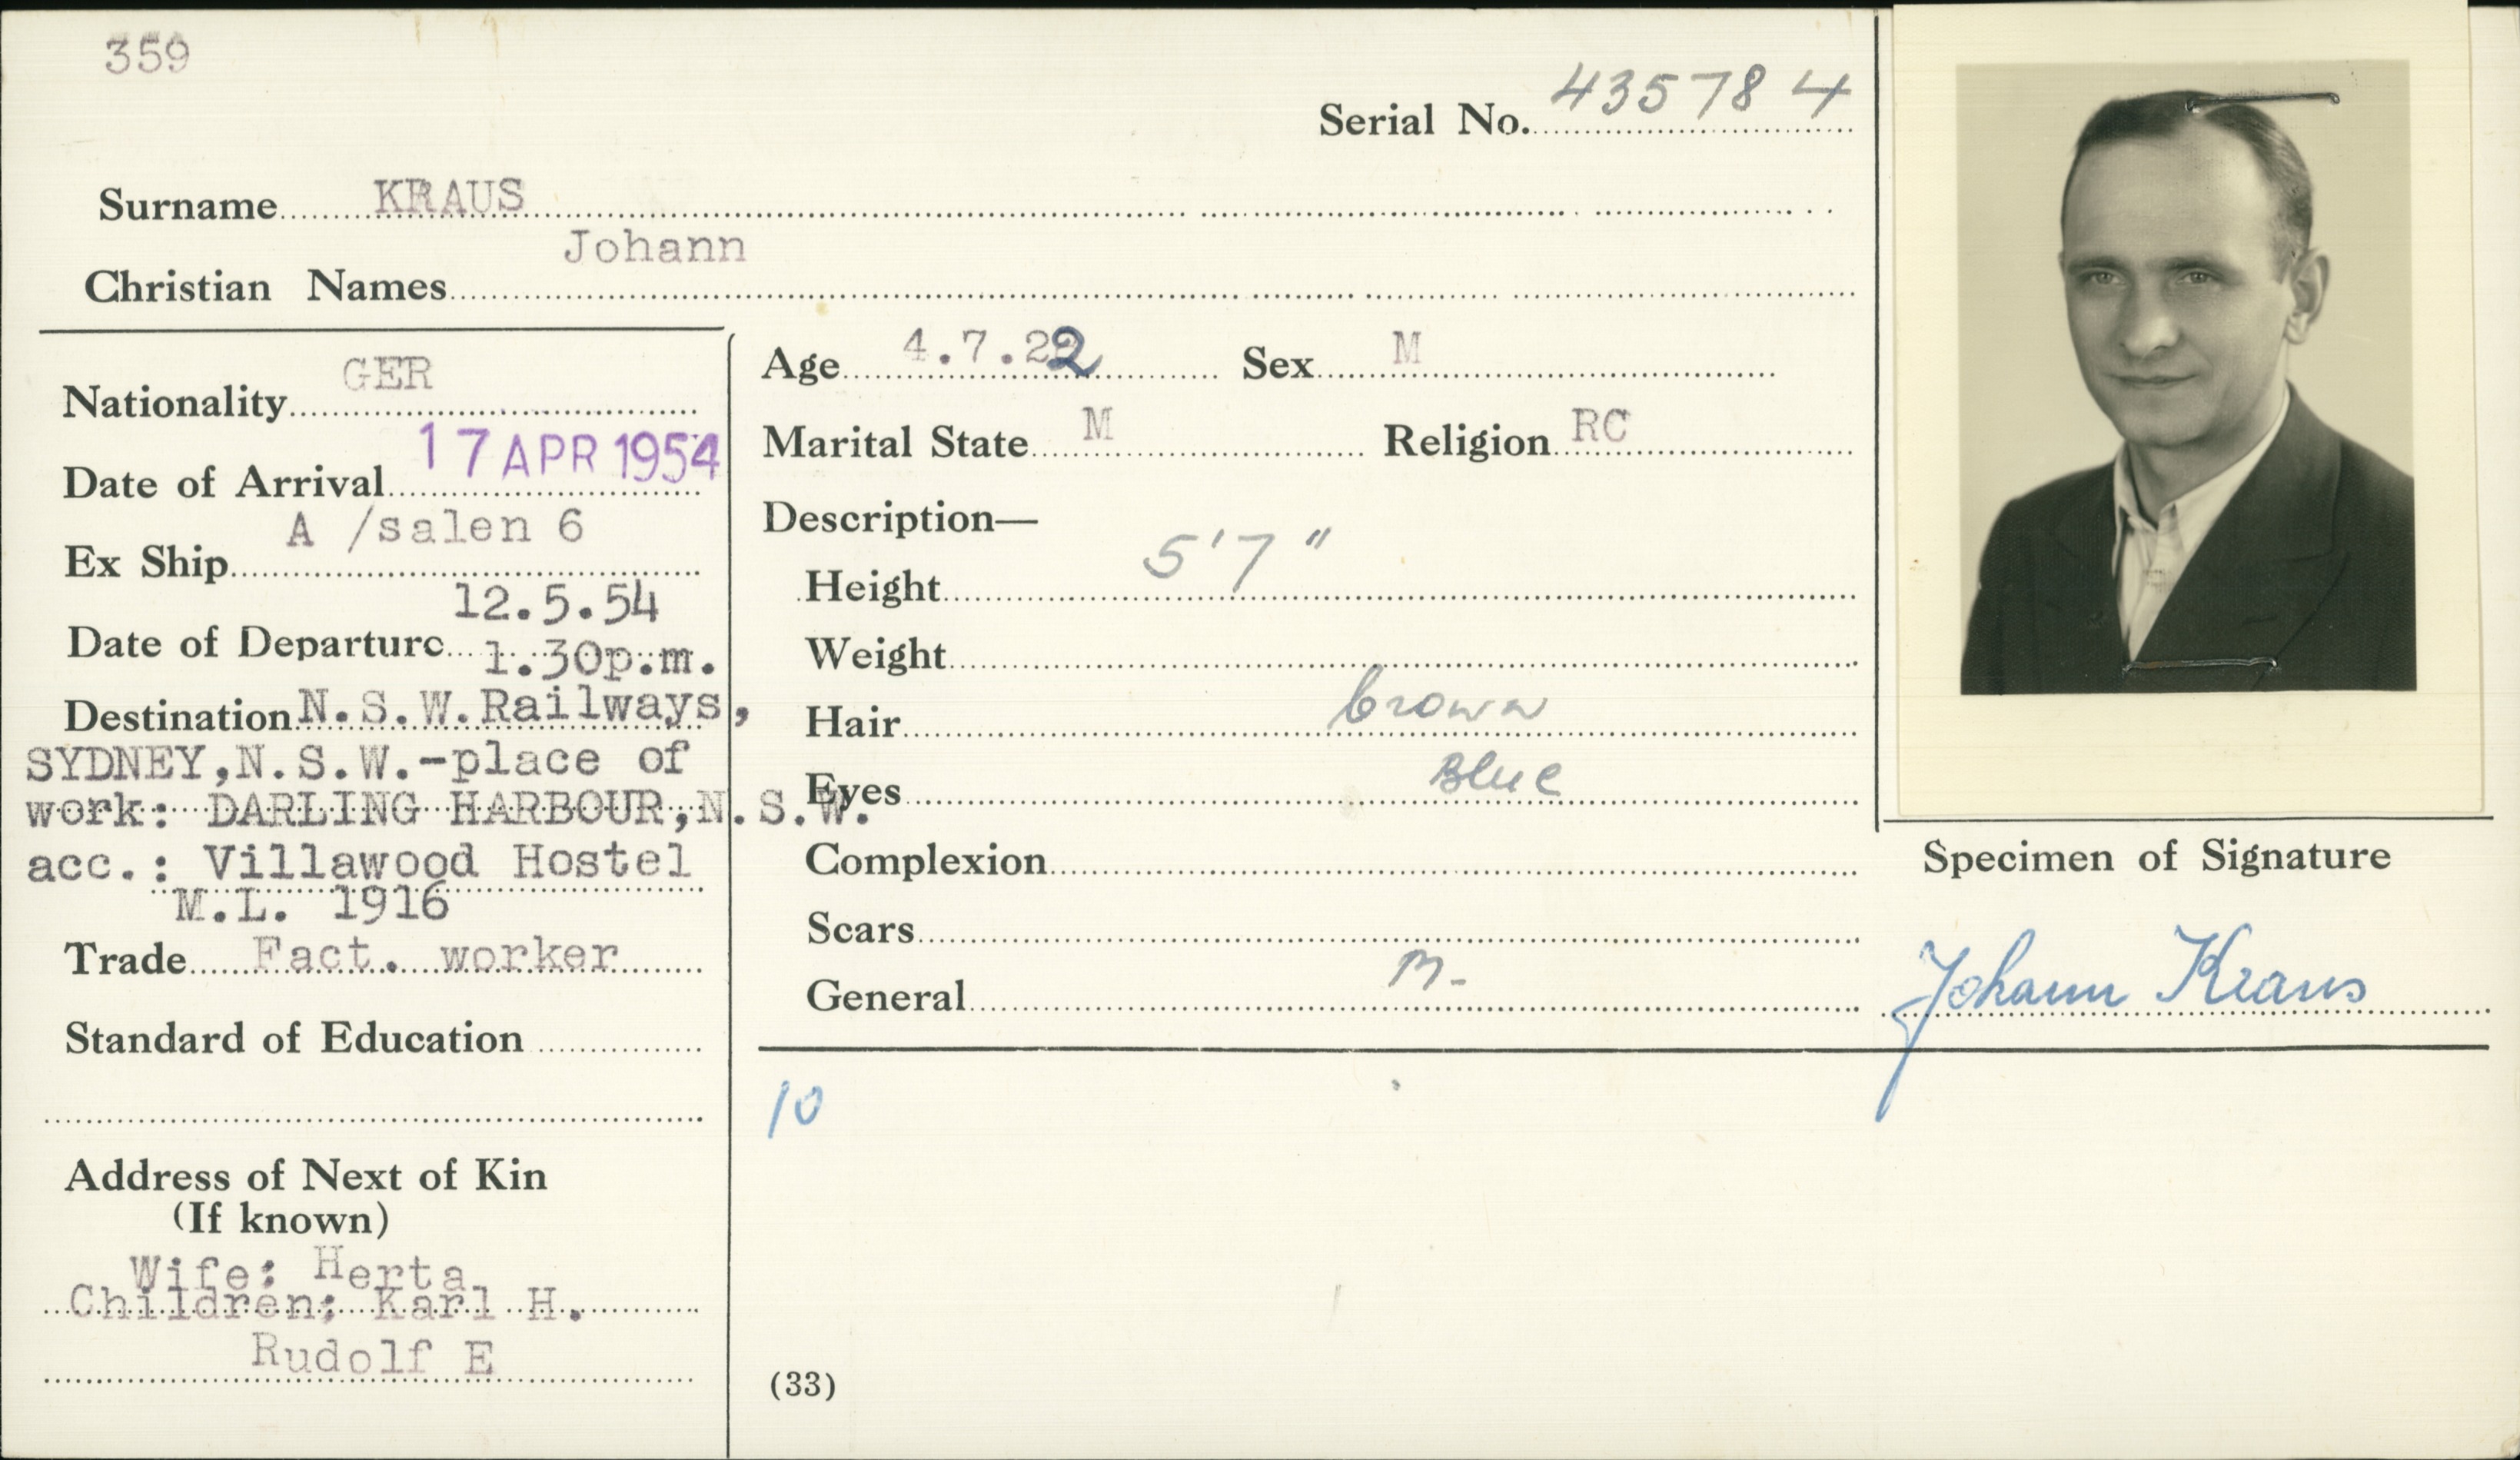 359
Serial No. 435784
Surname KRAUS
Christian Names Johann
Nationality GER
Date of Arrival 17 APR 1954
Ex Ship A /salen 6
Date of Departure 12.5.54
1.30p.m.
Destination N.S.W.Railways,
SYDNEY,N.S.W.-place of
work: DARLING HARBOUR,N.S.W.
acc.: Villawood Hostel
M.L. 1916
Trade Fact. worker
Standard of Education
Address of Next of Kin
(If known)
Wife: Herta
Children: Karl H.
Rudolf E
Age 4.7.22 Sex M
Marital State M Religion RC
Description—
Height 5'7"
Weight
Hair brown
Eyes Blue
Complexion
Scars
General M-
10
(33)
Specimen of Signature
Johann Kraus